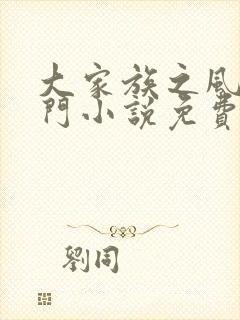 大家族之風
門小說免費
劉同